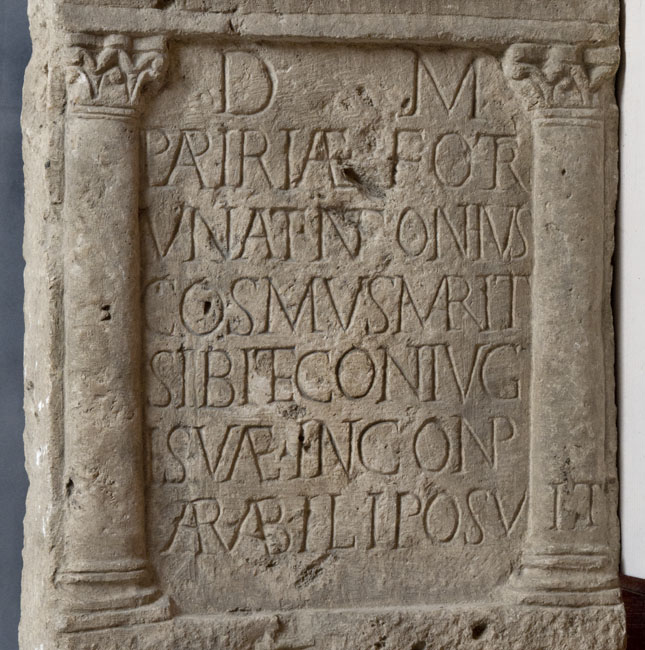 D M
PAPIRIÆ FORT
VNAT·ANTONIVS
COSMVS MARIT
SIBI ET CONIVG
I SVÆ·INCONP
ARABILI POSVIT